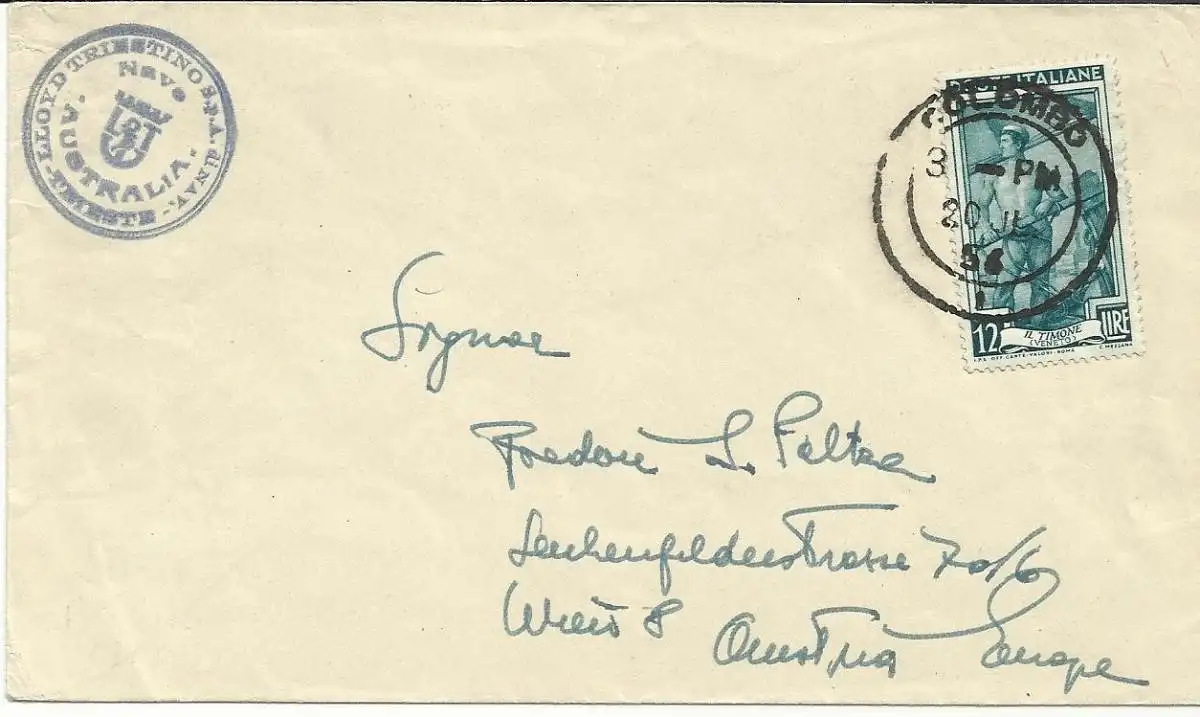 LLOYD TRIESTINO S.P.A. di NAV. - TRIESTE -
Nave
AUSTRALIA.
POSTE ITALIANE
COLOMBO
3 - PM
20 JL
54
1
12 LIRE
IL TIMONE
(VENETO)
I.P.S. OFF. CARTE-VALORI-ROMA
C. MEZZANA
Signor
L. Feltra
Lerchenfelderstrasse 70/6
Wien 8 Austria Europe